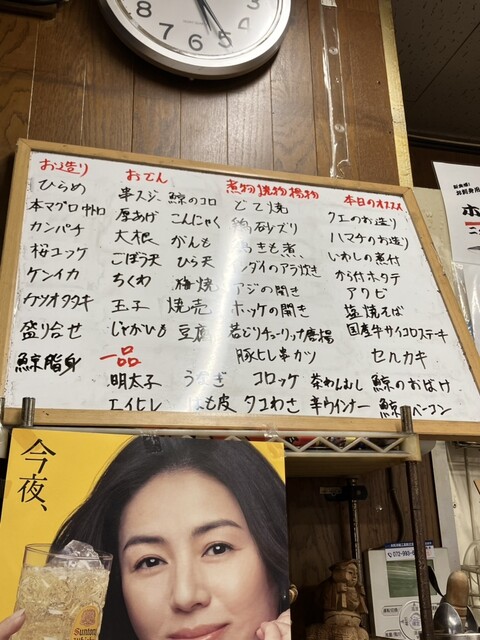 8 7 6 5 4
お造り
ひらめ
本マグロ中トロ
カンパチ
桜ユッケ
ケンイカ
カツオタタキ
盛り合せ
鯨脂身
おでん
串スジ 鯨のコロ
厚あげ こんにゃく
大根 がんも
ごぼう天 ひら天
ちくわ 梅焼
玉子 焼売
じゃがいも 豆腐
一品
明太子 うなぎ コロッケ 茶わんむし 鯨のおばけ
エイヒレ も皮 タコわさ 辛ウインナー 鯨ベーコン
煮物 焼物 揚物
どて焼
砂ズリ
きも煮
ダイのアラ炊き
アジの開き
ホッケの開き
若どりチューリップ唐揚
豚ヒレ串カツ
本日のオススメ
クエのお造り
ハマチのお造り
いわしの煮付
から付ホタテ
アワビ
塩焼そば
国産牛サイコロステーキ
セルカキ
今夜、
Suntory